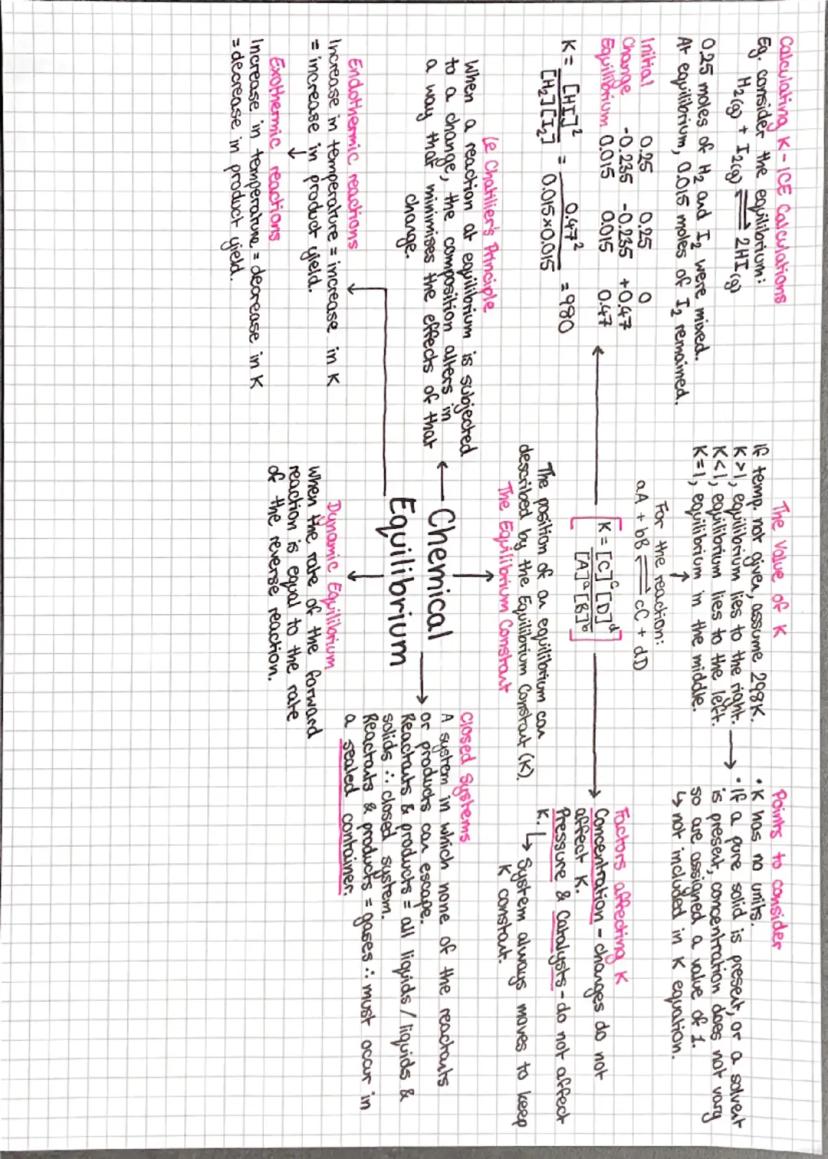 Calculating K - ICE Calculations
Eg. consider the equilibrium:
H₂(g) + I₂(g) ⇌ 2HI(g)
0.25 moles of H₂ and I₂ were mixed.
At equilibrium, 0.015 moles of I₂ remained.
Initial 0.25 0.25 0
Change -0.235 -0.235 +0.47
Equilibrium 0.015 0.015 0.47
K = [HI]² / [H₂][I₂] = 0.47² / 0.015×0.015 = 980
The Value of K
If temp. not given, assume 298K.
K>1, equilibrium lies to the right.
K<1, equilibrium lies to the left.
K=1, equilibrium in the middle.
For the reaction:
aA + bB ⇌ cC + dD
K = [C]ᶜ[D]ᵈ / [A]ᵃ[B]ᵇ
The position of an equilibrium can
described by the Equilibrium Constant (K).
The Equilibrium Constant
Points to consider
• K has no units.
• If a pure solid is present, or a solvent
is present, concentration does not vary
so are assigned a value of 1.
↳ not included in K equation.
Factors affecting K
Concentration - changes do not
affect K.
Pressure & Catalysts - do not affect
K. ↳ System always moves to keep
K constant.
Le Chatilier's Principle
When a reaction at equilibrium is subjected
to a change, the composition alters in
a way that minimises the effects of that
change.
Chemical
Equilibrium
Closed Systems
A system in which none of the reactants
or products can escape.
Reactants & products = all liquids / liquids &
solids ∴ closed system.
Reactants & products = gases ∴ must occur in
a sealed container.
Endothermic reactions
Increase in temperature = increase in K
= increase in product yield.
Exothermic reactions
Increase in temperature = decrease in K
= decrease in product yield.
Dynamic Equilibrium
When the rate of the forward
reaction is equal to the rate
of the reverse reaction.